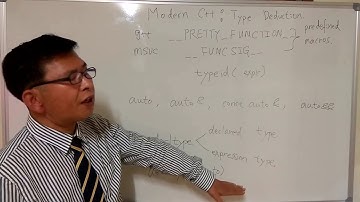 Modern C++ : Type Deduction
g++ __PRETTY_FUNCTION__ } predefined
msvc __FUNCSIG__ macros
typeid( expr)
auto, auto &, const auto &, auto &&
type < declared type
expression type